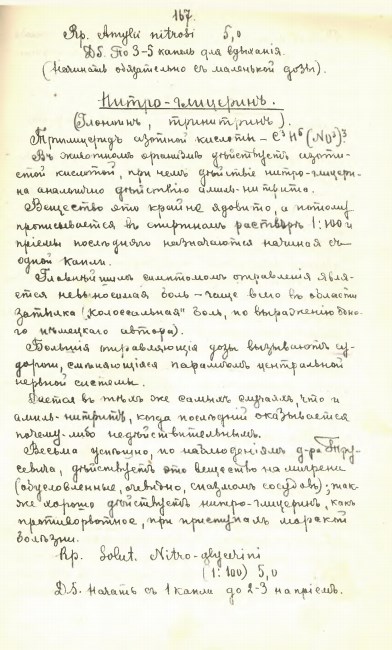 167.
Rp. Amylii nitrosi 5,0
DS. По 3-5 капель для вдыханія.
(Начинать обязательно съ маленькой дозы).
Нитро-глицеринъ.
(Глоноинъ, тринитринъ).
Триглицеридъ азотной кислоты – C³H⁵(NO³)³
Въ животномъ организмѣ дѣйствуетъ азоти-
стой кислотой, при чемъ дѣйствіе нитро-глицери-
на аналогично дѣйствію амиль-нитрита.
Вещество это крайне ядовито, а потому
прописывается въ спиртномъ растворѣ 1:100 и
пріемы послѣдняго назначаются начиная съ
одной капли.
Главнѣйшимъ симптомомъ отравленія явля-
ется невыносимая боль – чаще всего въ области
затылка ("колоссальная" боль, по выраженію одно-
го нѣмецкаго автора).
Большія отравляющія дозы вызываютъ су-
дороги, смѣняющіяся параличомъ центральной
нервной системы.
Дается въ тѣхъ же самыхъ случаяхъ, что и
амиль-нитритъ, когда послѣдній оказывается
почему-либо недѣйствительнымъ.
Весьма успѣшно, по наблюденіямъ д-ра
севича, дѣйствуетъ это вещество на мигрени
(обусловленные, очевидно, спазмомъ сосудовъ); так-
же хорошо дѣйствуетъ нитро-глицеринъ, какъ
противорвотное, при приступахъ морской
болѣзни.
Rp. Solut. Nitro-glycerini
(1:100) 5,0
DS. Начать съ 1 капли до 2-3 на пріемъ.